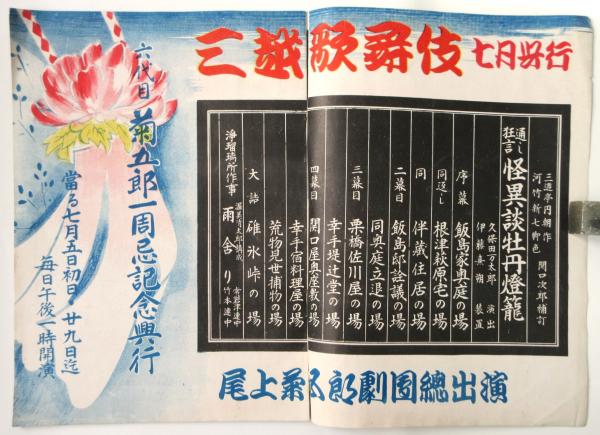 三越歌舞伎 七月興行
三遊亭円朝作
河竹新七脚色
関口次郎補訂
通し狂言
怪異談牡丹燈籠
久保田万太郎 演出
伊藤熹朔 装置
序幕 飯島家奥庭の場
同返し 根津萩原宅の場
同 伴蔵住居の場
二幕目 飯島邸詮議の場
同奥庭立退の場
三幕目 栗橋佐川屋の場
幸手堤辻堂の場
四幕目 関口屋奥座敷の場
幸手宿料理屋の場
荒物見世捕物の場
大詰 碓氷峠の場
浄瑠璃所作事
雨舎り
竹本連中
六代目
菊五郎一周忌記念興行
當る七月五日初日・廿九日迄
毎日午後一時開演
尾上菊五郎劇団總出演